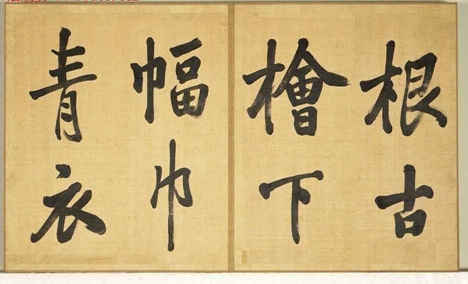 根古
檜下
幅巾
青衣